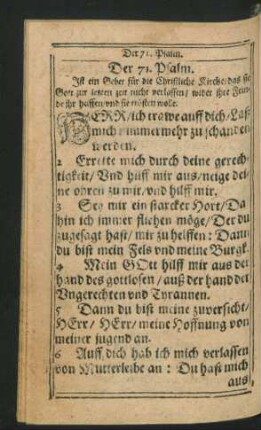 Der 71. Psalm.
Der 71. Psalm.
Ist ein Gebet für die Christliche Kirche/ daß sie
Gott zur letzten zeit nicht verlassen/ wider ihre Fein-
de ihr helffen/ und sie trösten wolle.
HERR/ ich trawe auff dich/ Laß
mich nimmermehr zu schanden
werden.
2 Errette mich durch deine gerech-
tigkeit/ Vnd hilff mir aus/ neige dei-
ne ohren zu mir/ vnd hilff mir.
3 Sey mir ein starcker Hort/ Da
hin ich immer fliehen möge/ Der du
zugesagt hast/ mir zu helffen: Dann
du bist mein Fels vnd meine Burgk.
4 Mein GOtt hilff mir aus der
hand des gottlosen/ auß der hand der
Vngerechten vnd Tyrannen.
5 Dann du bist meine zuversicht/
HErr/ HErr/ meine Hoffnung von
meiner jugend an.
6 Auff dich hab ich mich verlassen
von Mutterleibe an: Du hast mich
aus